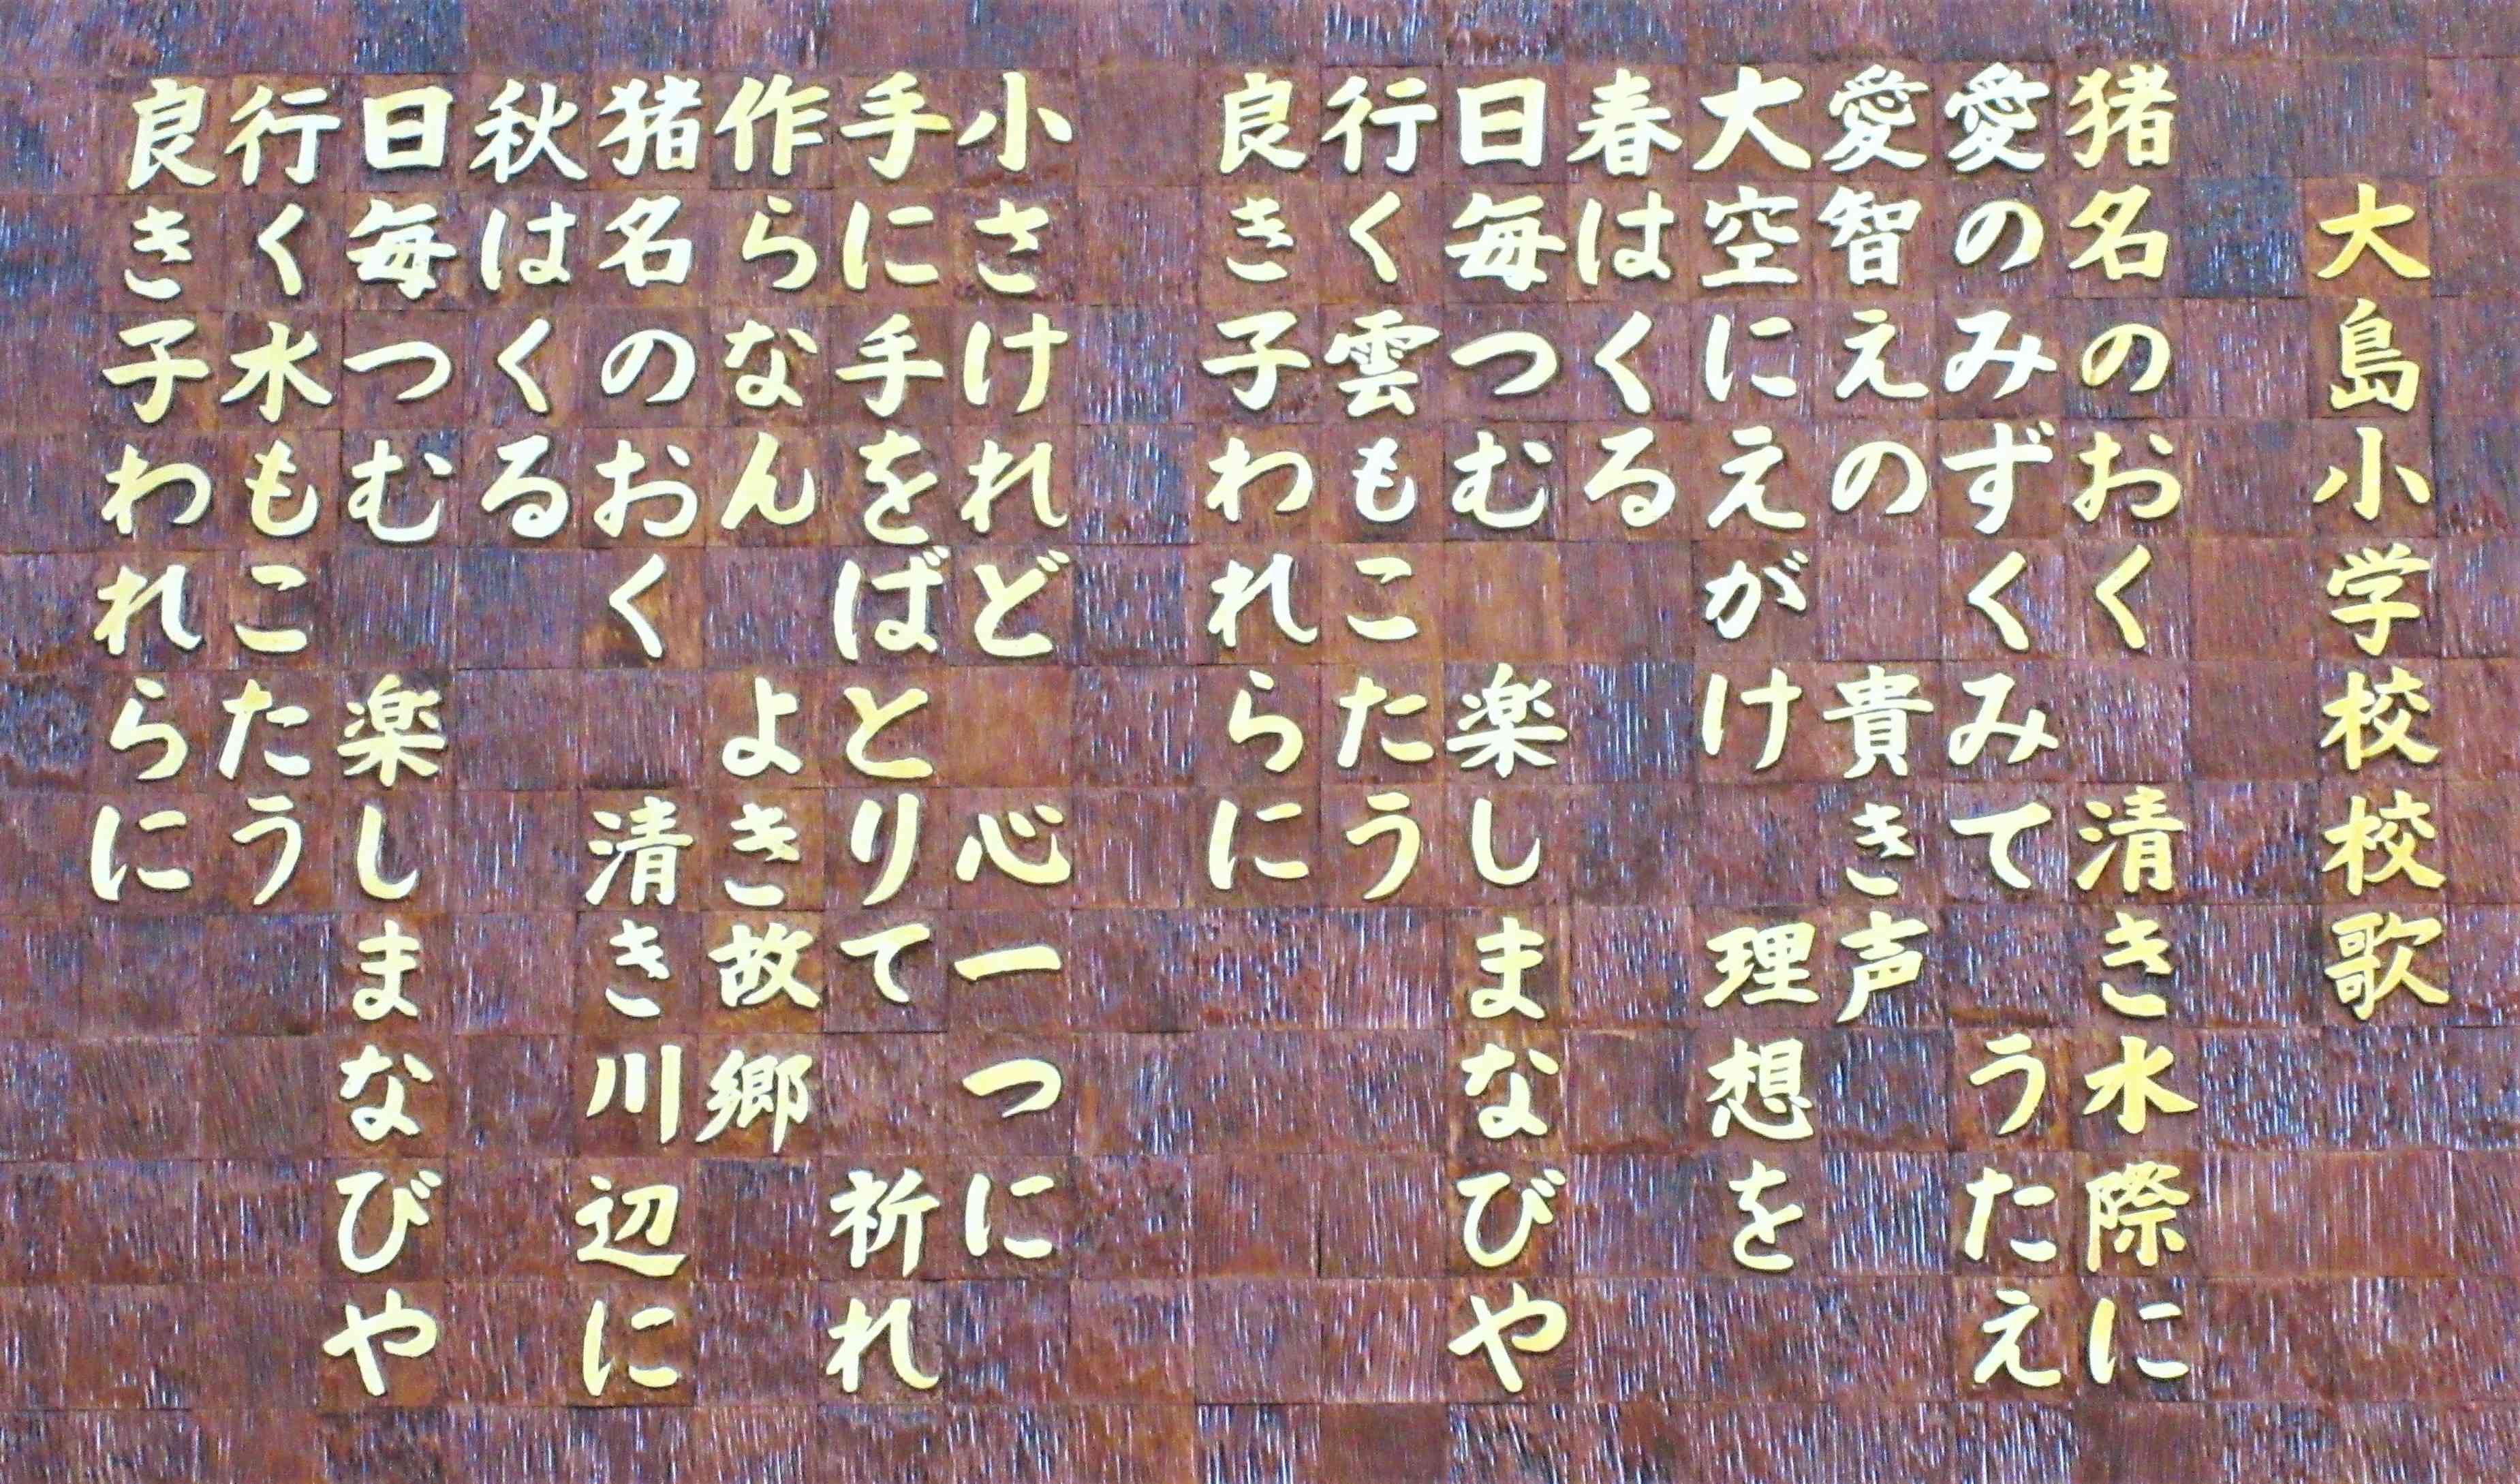 大島小学校校歌
猪名のおく 清き水際に
愛のみずくみて うたえ
愛智えの 貴き声
大空にえがけ 理想を
春はくる
日毎つむ 楽しまなびや
行く雲もこたう
良き子われらに
小さけれど 心一つに
手に手をばとりて 祈れ
作らなん よき故郷
猪名のおく 清き川辺に
秋はくる
日毎つむ 楽しまなびや
行く水もこたう
良き子われらに